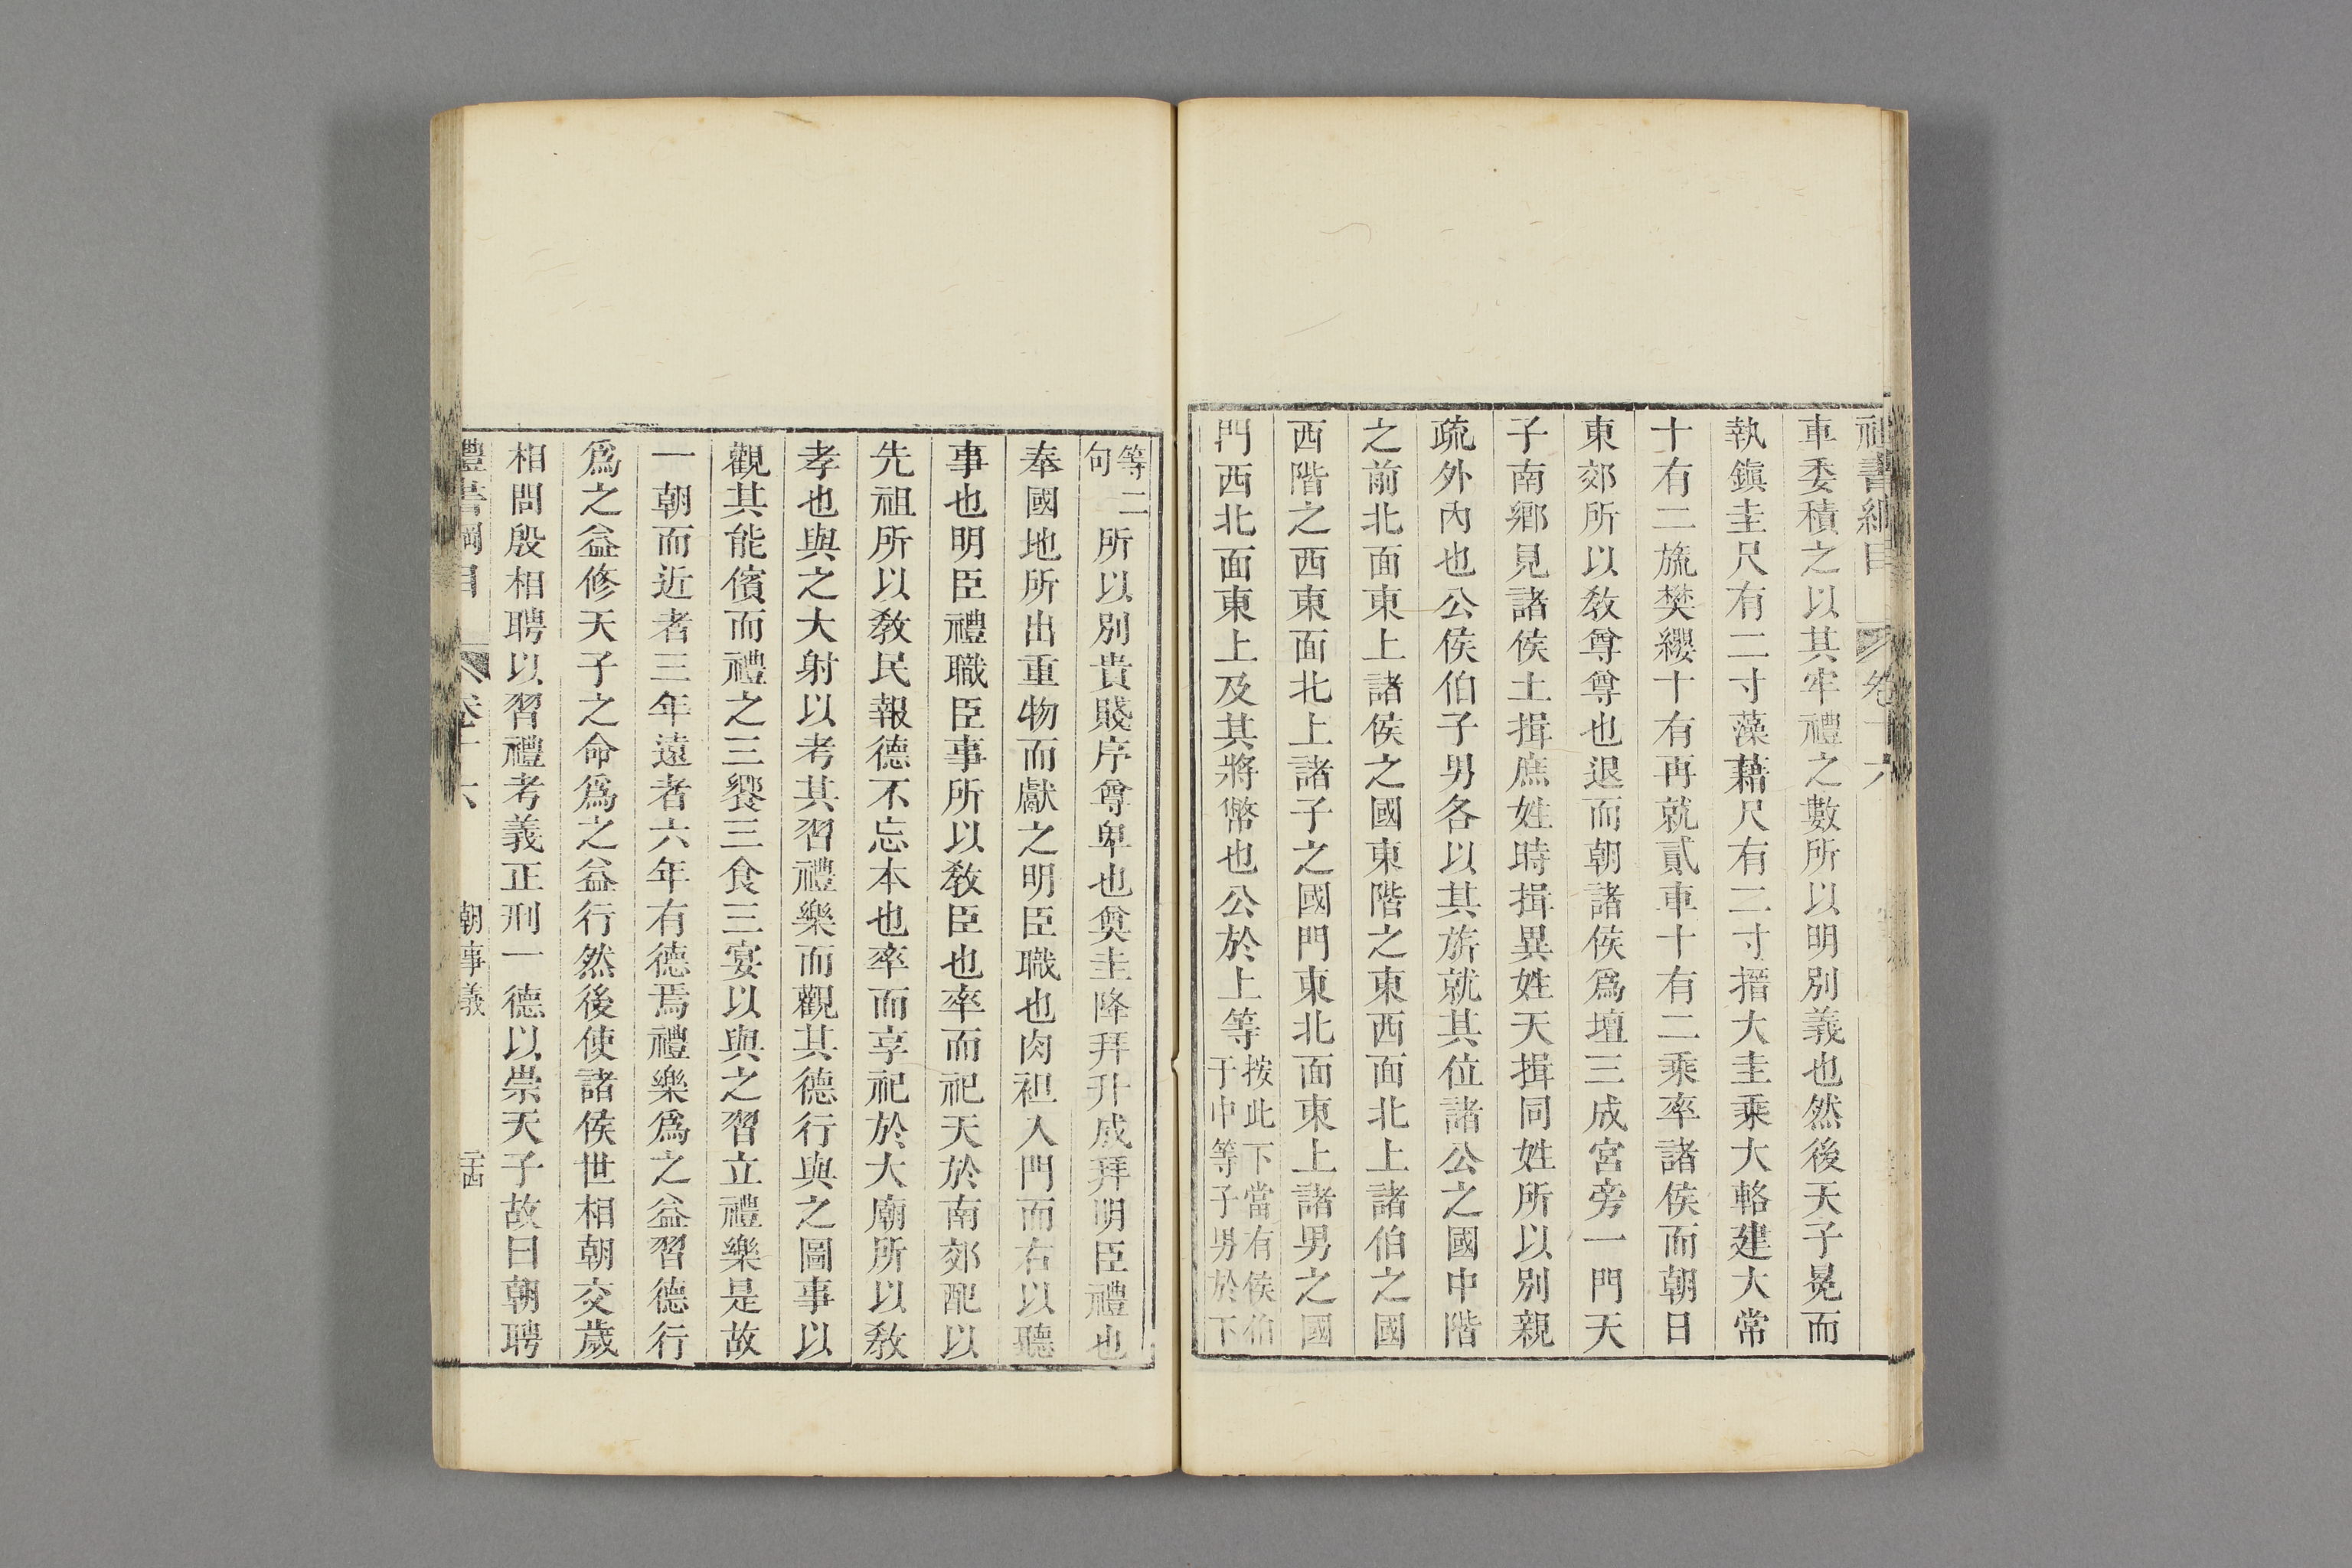 禮書綱目 卷十六
車委積之以其牢禮之數所以明別義也然後天子冕而
執鎭圭尺有二寸藻藉尺有二寸搢大圭乘大輅建大常
十有二旒樊纓十有再就貳車十有二乘率諸侯而朝日
東郊所以敎尊尊也退而朝諸侯爲壇三成宮旁一門天
子南鄉見諸侯土揖庶姓時揖異姓天揖同姓所以別親
疏外內也公侯伯子男各以其旂就其位諸公之國中階
之前北面東上諸侯之國東階之東西面北上諸伯之國
西階之西東面北上諸子之國門東北面東上諸男之國
門西北面東上及其將幣也公於上等
按此下當有侯伯
于中等子男於下
等二
句
所以別貴賤序尊卑也奠圭降拜升成拜明臣禮也
奉國地所出重物而獻之明臣職也肉袒入門而右以聽
事也明臣禮職臣事所以敎臣也率而祀天於南郊配以
先祖所以敎民報德不忘本也率而享祀於大廟所以敎
孝也與之大射以考其習禮樂而觀其德行與之圖事以
觀其能儐而禮之三饗三食三宴以與之習立禮樂是故
一朝而近者三年遠者六年有德焉禮樂爲之益習德行
爲之益修天子之命爲之益行然後使諸侯世相朝交歲
相問殷相聘以習禮考義正刑一德以崇天子故曰朝聘
禮書綱目 卷十六 朝事義 二十四